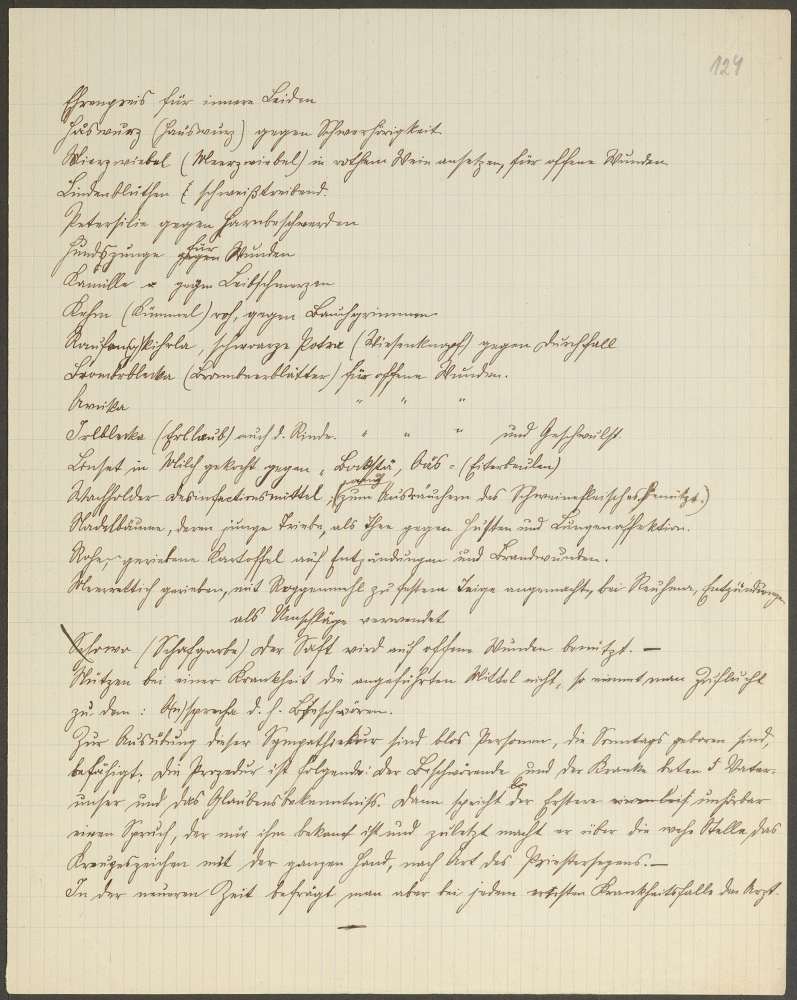 124
Ehrenpreis für innere Leiden
Håswurz (Hauswurz) gegen Schwerhörigkeit
Mierzwiebel (Meerzwiebel) in rothem Wein ansetzen, für offene Wunden
Lindenblüthen schweißtreibend.
Petersilie gegen Harnbeschwerden
Hundszunge für Wunden
Kamille gegen Leibschmerzen
Kehm (Kümmel) roh, gegen Bauchgrimmen
schwarze (Wiesenknopf) gegen Durchfall
Brombrblecka (Brombeerblätter) für offene Wunden.
Arnika " " "
Irlblecka (Erllaub) auch d. Rinde. " " " und Geschwulst
in Milch gekocht gegen (Eiterbeulen)
Wachholder Desinfectionsmittel, (auch zum Ausräuchern des Schweinefleisches benützt.)
Nadelbäume, deren junge Triebe, als Thee gegen Husten und Lungenaffektion.
Rohe, geriebene Kartoffel auf Entzündungen und Brandwunden.
Meerrettich gerieben, mit Roggenmehl zu festem Teige angemacht, bei Rheuma, Entzündungen
als Umschläge verwendet
(Schafgarbe) der Saft wird auf offene Wunden benützt. –
Nützen bei einer Krankheit die angeführten Mittel nicht, so nimmt man Zuflucht
zu dem: d. h. Beschwören.
Zur Ausübung dieser Sympathiekur sind blos Personen, die Sonntags geboren sind,
befähigt. Die Prozedur ist folgende: Der Beschwörende und der Kranke beten 5 Vater-
unser und das Glaubensbekenntniß. Dann spricht der Erstere unhörbar
einen Spruch, der nur ihm bekannt ist und zuletzt macht er über die wehe Stelle das
Kreuzeszeichen mit der ganzen Hand, nach Art des Priestersegens. –
In der neueren Zeit befrägt man aber bei jedem ernsten Krankheitsfalle den Arzt.